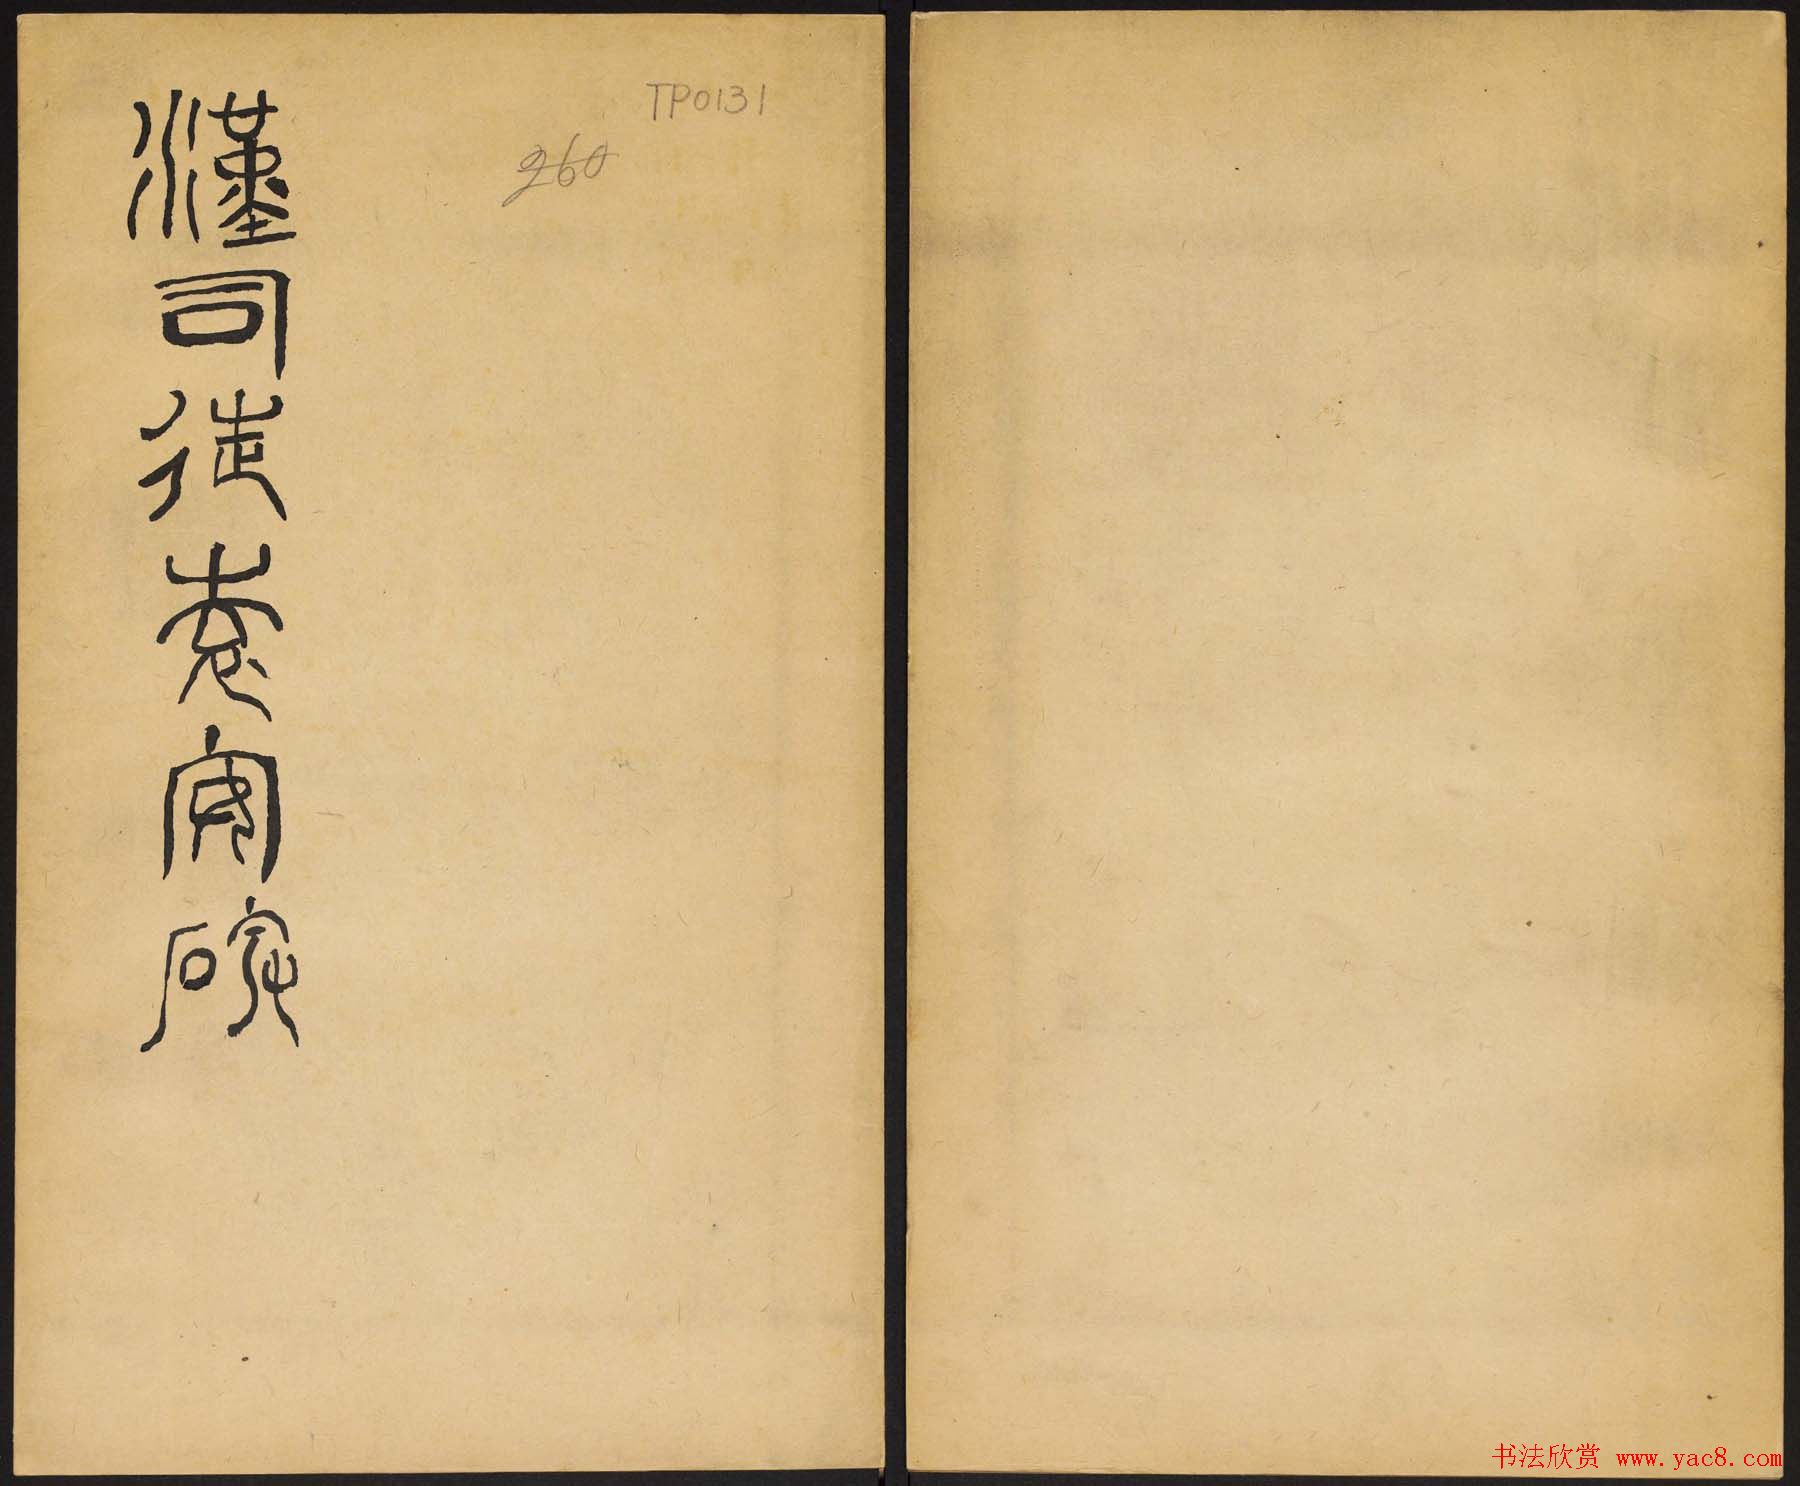 TP0131
260
漢司徒袁安
书法欣赏 www.yac8.com